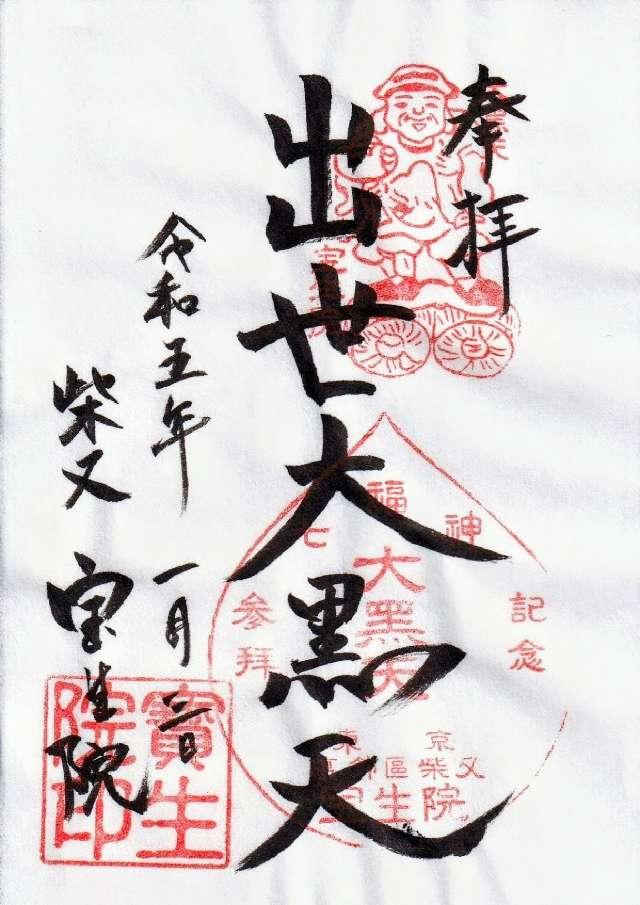 奉拝
出世大黒天
令和五年 一月三日
柴又 宝生院
七福神
大黒天
参拝
記念
東京
區柴又
生院
寶生
院印